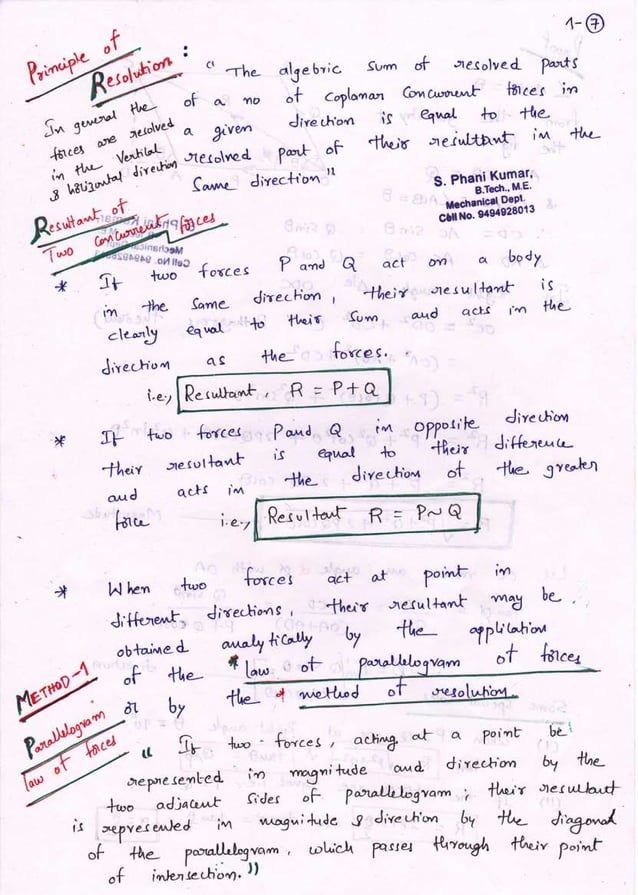 1-7
Principle of
Resolution :
" The algebric sum of resolved parts
of a no of Coplanar Concurrent forces in
a given direction is equal to the
resolved part of their resultant in the
Same direction"
In general the
forces are resolved
in the Vertical
& horizontal direction
S. Phani Kumar,
B.Tech., M.E.
Mechanical Dept.
Cell No. 9494928013
Resultant of
Two concurrent forces
* If two forces P and Q act on a body
in the same direction, their resultant is
clearly equal to their sum and acts in the
direction as the forces.
i.e., Resultant, R = P+Q
* If two forces P and Q in opposite direction
their resultant is equal to their difference
and acts in the direction of the greater
force i.e., Resultant R = P~Q
* When two forces act at point in
different directions, their resultant may be
obtained analytically by the application
of the * law of parallelogram of forces
or by the * method of resolution
METHOD-1
Parallelogram
law of forces
" If two forces, acting at a point be
represented in magnitude and direction by the
two adjacent sides of parallelogram; their resultant
is represented in magnitude & direction by the diagonal
of the parallelogram, which passes through their point
of intersection."